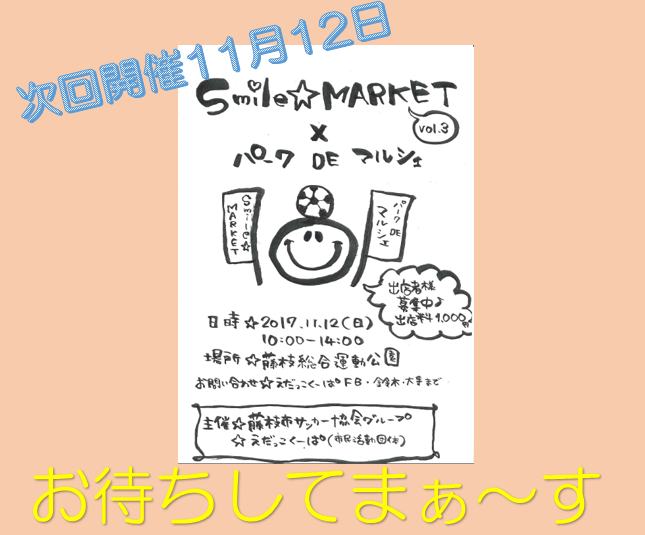 次回開催11月12日
Smile☆MARKET
vol.3
×
パーク DE マルシェ
Smile☆
MARKET
パーク DE
マルシェ
出店者様
募集中♪
出店料 1,000円
日時☆2017.11.12(日)
10:00-14:00
場所☆藤枝総合運動公園
お問い合わせ☆えだっこくーぱFB・鈴木・大手まで
主催☆藤枝市サッカー協会グループ
☆えだっこくーぱ(市民活動団体)
お待ちしてまぁ～す